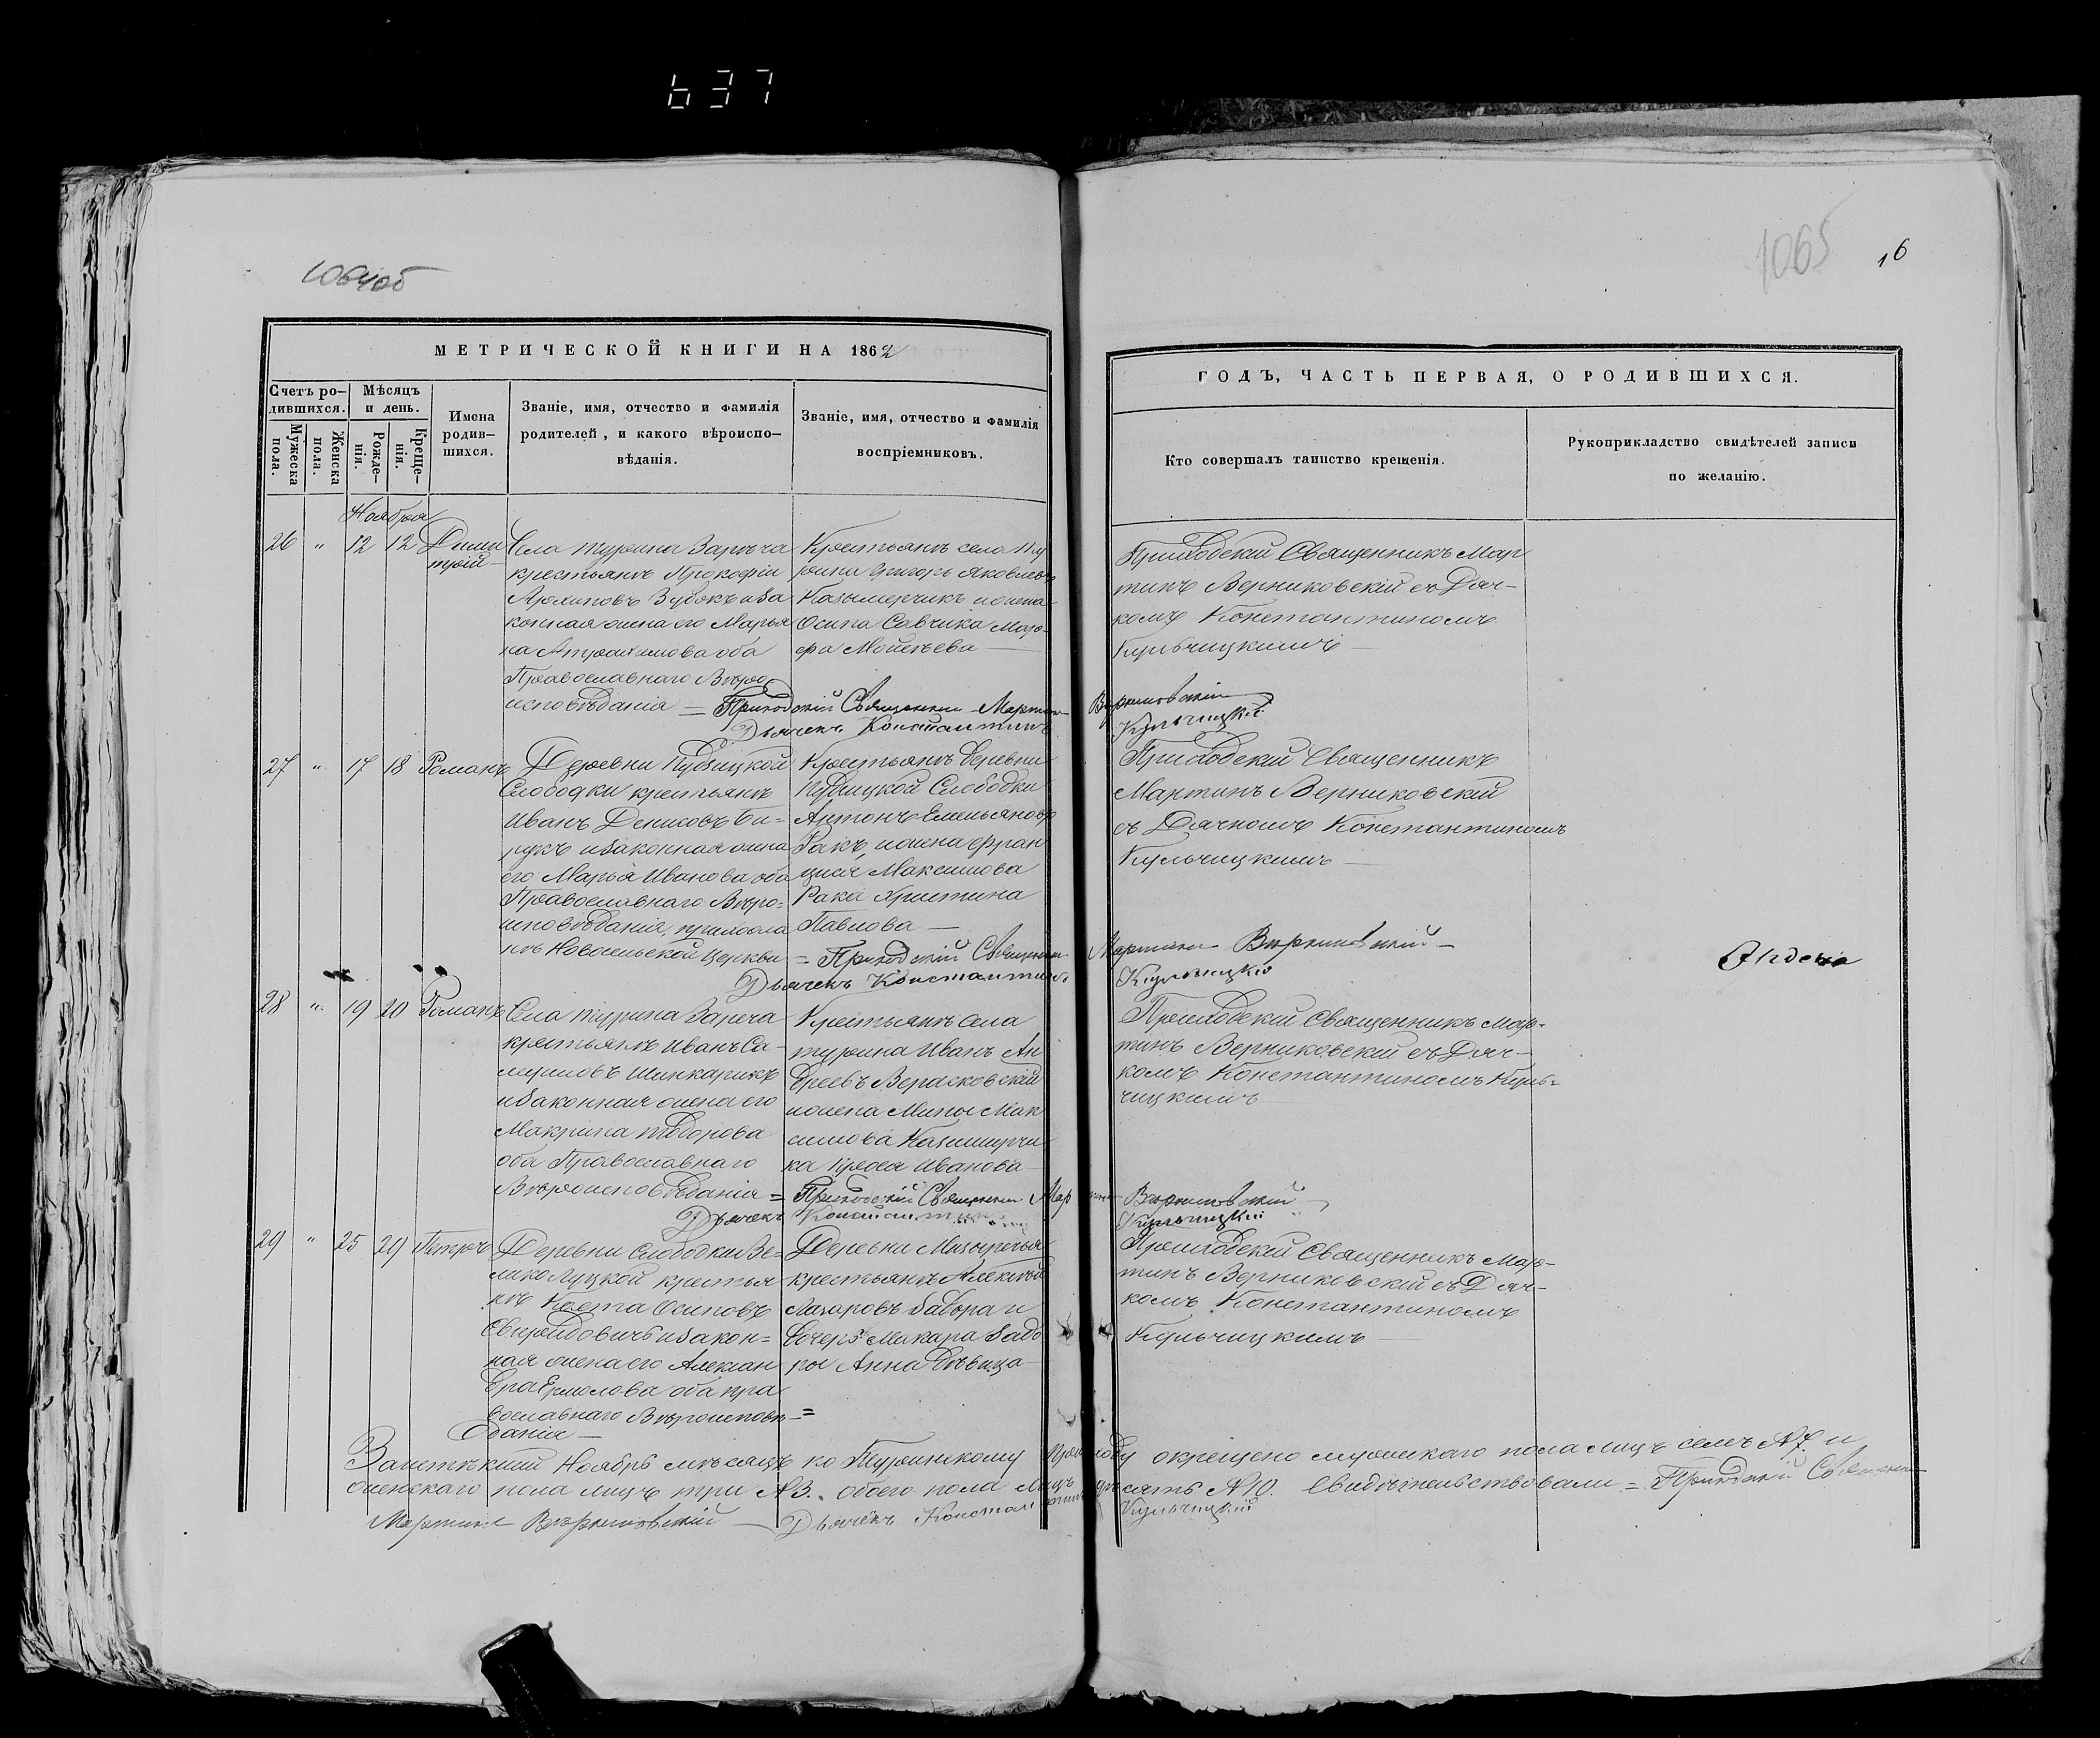 637
1064об
1065
16
МЕТРИЧЕСКОЙ КНИГИ НА 1862
ГОДЪ, ЧАСТЬ ПЕРВАЯ, О РОДИВШИХСЯ.
Счетъ ро-
дившихся.
Мужеска
пола.
Женска
пола.
Мѣсяцъ
и день.
Рожде-
нія.
Креще-
нія.
Имена
родив-
шихся.
Званіе, имя, отчество и фамилія
родителей, и какого вѣроиспо-
вѣданія.
Званіе, имя, отчество и фамилія
воспріемниковъ.
Кто совершалъ таинство крещенія.
Рукоприкладство свидѣтелей записи
по желанію.
Ноября
26 " 12 12 Дими
трій
Села Турина Зарѣча
крестьянъ Прокофій
Архиповъ Зубокъ и за
конная жена его Марья
на
оба
Православнаго Вѣро
исповѣданія =
Крестьянъ села Ту
рина Григорь Яковлевъ
Казымерчикъ и жена
Осипа Савчика Мар
фа Моисѣева —
Приходскій Священникъ Мар
тинъ Верниковскій съ Дяч-
комъ Константиномъ
Кульчицкимъ —
Приходскій Священник Мартин Верниковский
Дьячекъ Константинъ Кульчицкій
27 " 17 18 Романъ
Деревни Пудицкой
Слободки крестьянъ
Иванъ Денисовъ Би=
рукъ и законная жена
его Марья Иванова оба
Православнаго Вѣро=
исповѣданія, прихожа
нѣ Новосельской Церкви
Крестьянъ деревни
Пудицкой Слободки
Антонъ Емельяновъ
Ракъ, и жена Фран
циск Максимова
Рака Христина
Павлова —
Приходскій Священникъ
Мартинъ Верниковскій
съ Дячкомъ Константиномъ
Кульчицкимъ —
= Приходский Священник Мартин Верниковский —
Дьячекъ Константинъ Кульчицкій
28 " 19 20 Романъ
Села Турина Зареча
крестьянъ Иванъ Са
муиловъ Шинкарикъ
и законная жена его
Макрина Ѳедорова
оба Православнаго
Вѣроисповѣданія =
Крестьянъ села
Турина Иванъ Ан
дреевъ Верасковскій
и жена Мины Мак
симова Казимирчи
ка Иванова
Приходскій Священникъ Мар-
тинъ Верниковскій съ Дяч-
комъ Константиномъ Куль=
чицкимъ
Приходскій Священник Мартин Верниковский
Дьячекъ Константинъ Кульчицкій
29 " 25 29 Петръ
Деревни Слободки Ве=
лико Луцкой крестья
нъ Осиповъ
Свиридовичъ и закон=
ная жена его Алексан
дра Ермолова оба пра
вославнаго Вѣроисповѣ=
данія —
Деревни Мазыречья
крестьянъ Алексѣй
Лазаровъ Забора и
дочерь Макара Забо
ры Анна дѣвица
Приходскій Священникъ Мар-
тинъ Верниковскій съ Дяч-
комъ Константиномъ
Кульчицкимъ —
Ноябрь мѣсяцъ по Туринскому приходу окрещено мужскаго пола лицъ семь №7 и
женскаго пола лицъ три №3. обоего пола лицъ десять №10. Свидѣтельствовали = Приходский Священник
Мартин Верниковский — Дьячекъ Константинъ Кульчицкій